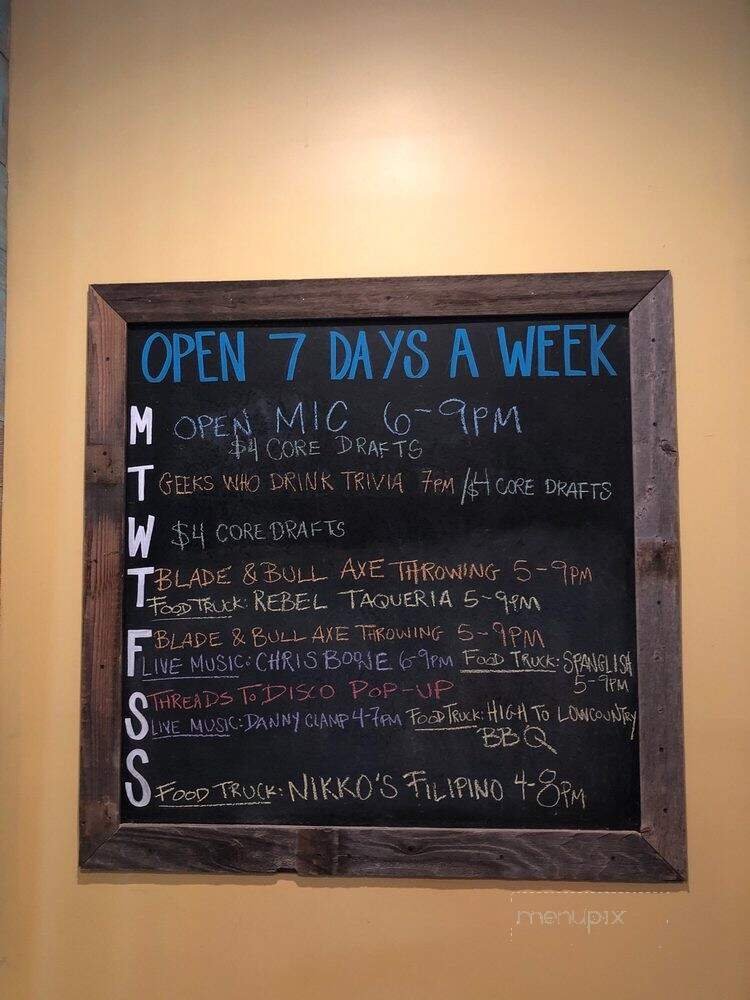 OPEN 7 DAYS A WEEK
M OPEN MIC 6-9PM
$4 CORE DRAFTS
T GEEKS WHO DRINK TRIVIA 7PM/$4 CORE DRAFTS
W $4 CORE DRAFTS
T BLADE & BULL AXE THROWING 5-9PM
FOOD TRUCK: REBEL TAQUERIA 5-9PM
F BLADE & BULL AXE THROWING 5-9PM
LIVE MUSIC: CHRIS BOONE 6-9PM FOOD TRUCK: SPANGLISH
5-9PM
S THREADS TO DISCO POP-UP
LIVE MUSIC: DANNY CLAMP 4-7PM FOOD TRUCK: HIGH TO LOWCOUNTRY
BBQ
S FOOD TRUCK: NIKKO'S FILIPINO 4-8PM
menupix